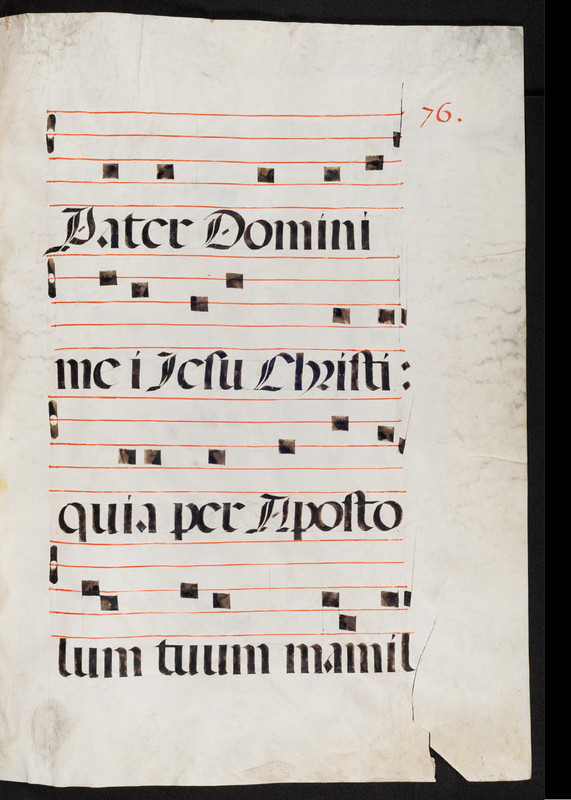 76.
Pater Domini
me i Jesu Christi :
quia per Aposto
lum tuum mamil